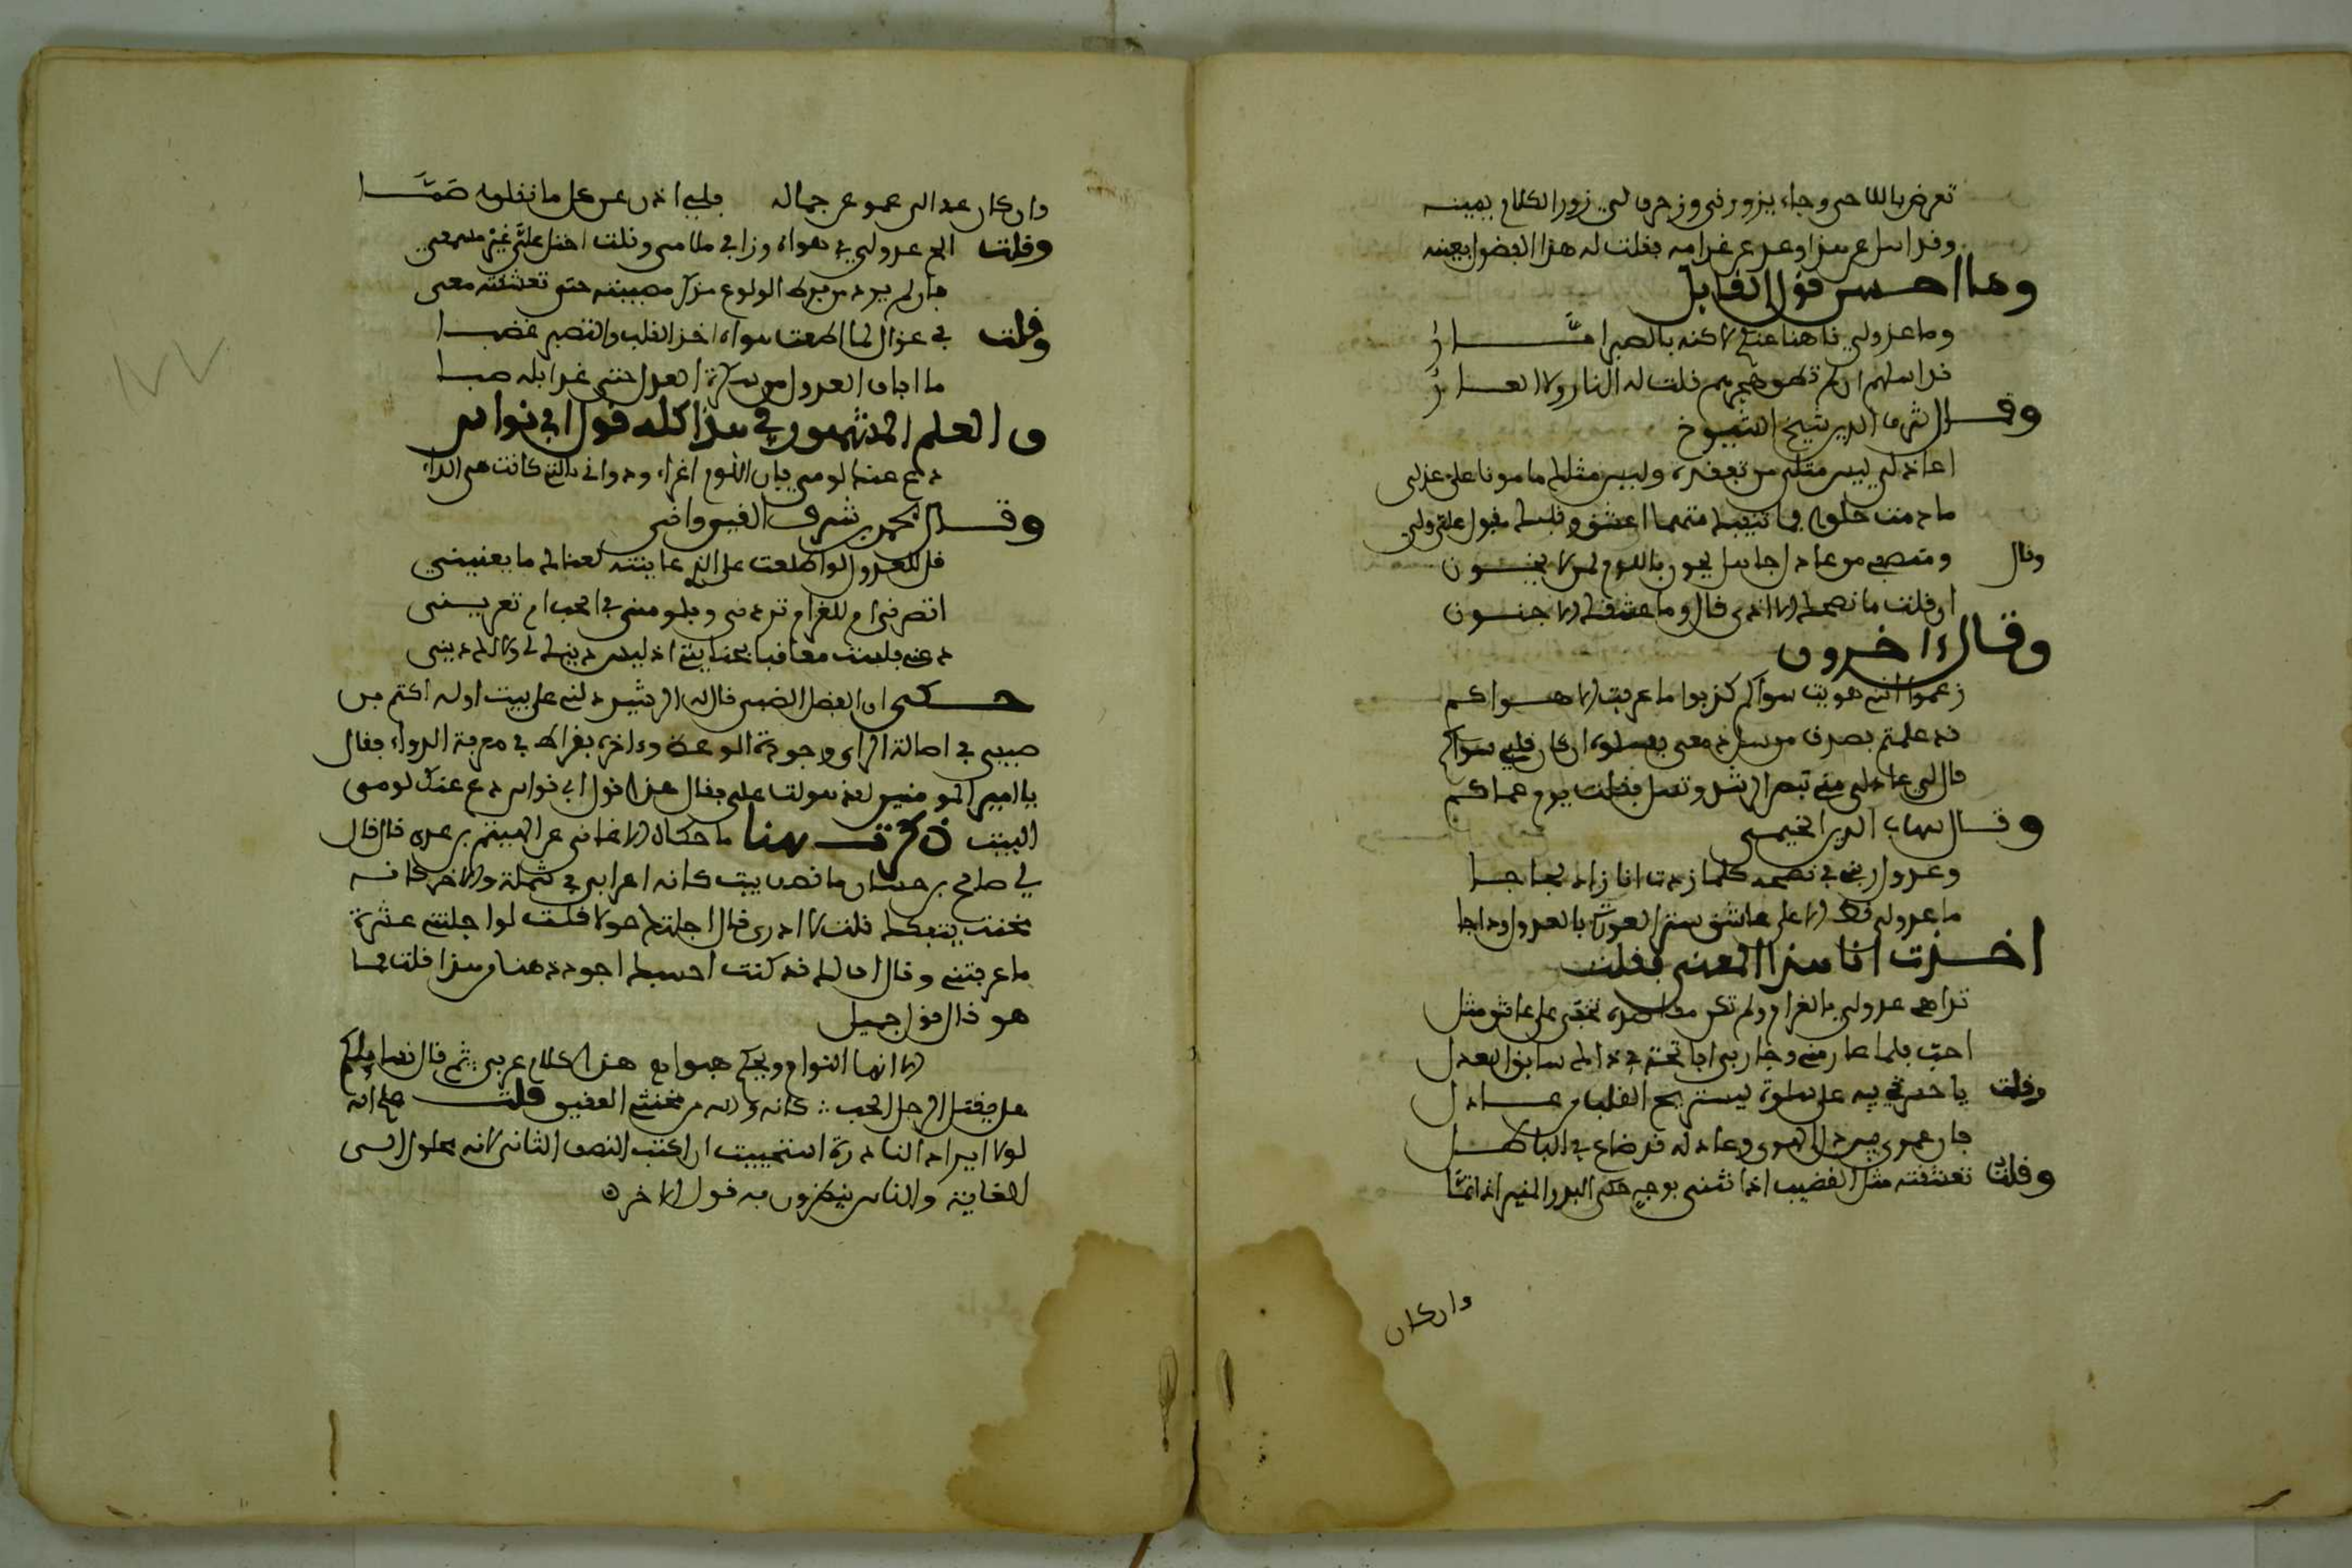 تعرض باللاحى وجاء يزورنى وزخرف لي زور الكلام بمينه
وقد اسا عن هذا وعد عن غرامه فقلت له هذا الفضول بعينه
وما احسن قول القايل
وما عذولي ناهنا عنك لاكنه بالصبر امَّار
قد اسلم ان لم تطق هجرهم قلت له النار ولا العار
وقال شرف الدين شيخ الشيوخ
اعاذلي ليس مثلى من تفنده وليس مثلك مامونا على عذلى
ما دمت خلوا فما تنفك متهما اعشق وقولك مقبول علي ولي
وقال ومتعب من عاذل جاهل يلحون باللوم لمن لا يخون
ان قلت ما نصحك الا اذى قال وما عشقك الا جنون
وقال ءاخرون
زعموا اننى هويت سواكم كذبوا ما عرفت الا هواكم
قد علمتم بصدق مرسل دمعى فسلوه ان كان قلبي سواكم
قال لي عاذلى متى تبصر الرشد وتسلى فقلت يوم عماكم
وقال شهاب الدين الخيمى
وعذول ربى في نصحه كلما زدت انا زاد لجاجا
ما عذولى قط الا على عاشق ستر العورة بالعذل وداجا
اخذت انا هذا المعنى فقلت
تراهى عذولي بالغرام ولم تكن مقاصده تخفى على عاشق مثلى
احب فلما غار منى وجار بى اباتحته في ذا لم سابق العذل
وقلت يا حسرتي فيه على سلوة ليستريح القلب من عاذل
فان عمرى فيه ذل الهوى وعاذله قد ضاع في الباطل
وقلت تعشقته مثل القضيب اذا نثنى بوجه حكى البدر المنير اذا تمَّا
وان كان
وان كان عذالى عموا عن جماله فلي اذن عن كل ما نقلوه صَمَّا
وقلت الح عذولي في هواه وزاد في ملامى وقلت احتل على غير مسمعى
فان لم يرد من فرط الولوع بذكر مصيبته حتى تعشقه معى
وقلت في غزال لما اطعت هواه اخذ القلب والتصبر غصبا
ما افاق العذول من سكرة العذل حتى غدا به صبا
والعلم المشهور في هذا كله قول ابي نواس
دع عنك لومى فان اللوم اغراء وداونى بالتي كانت هى الداء
وقال محمد بن شرف القيروانى
قل للعذول لو اطلعت على الذي عاينته لعناك ما يعنينى
اتصدنى ام للغرام تردنى وتلومنى في الحب ام تغرينى
دعنى فلست معاقبا بجنايتى اذ ليس دينك لى ولا لك دينى
حكى ان الفضل الضبى قال له الرشيد دلنى على بيت اوله اكثم بن
صيفى في اصالة الراى وجودة الموعظة وءاخره بقراط في معرفة الدواء فقال
يا امير المومنين لقد هولت على فقال هذا قول ابي نواس دع عنك لومى
البيت ذكرت هنا ما حكاه الاغانى عن الهيثم بن عدى قال قال
لي صالح بن حسان ما نصف بيت كانه اعرابي في شملة والاخر كانه
مخنث يتفكك قلت لا ادرى قال اجلتك حولا قلت لو اجلتنى عشرة
ما عرفته وقال اف لك قد كنت احسبك اجود ذهنا من هذا قلت فما
هو قال قول جميل
الا ايها النوام ويحكم هبوا مع هذا كلام عربي ثم قال نسايلكم
هل يقتل الرجل الحب كانه والله من مخنثى العقيق قلت على انه
لولا ايراد النادرة استحييت ان اكتب النصف الثانى لانه محلول الى
الغاية والناس ينكرون فيه قول الاخر